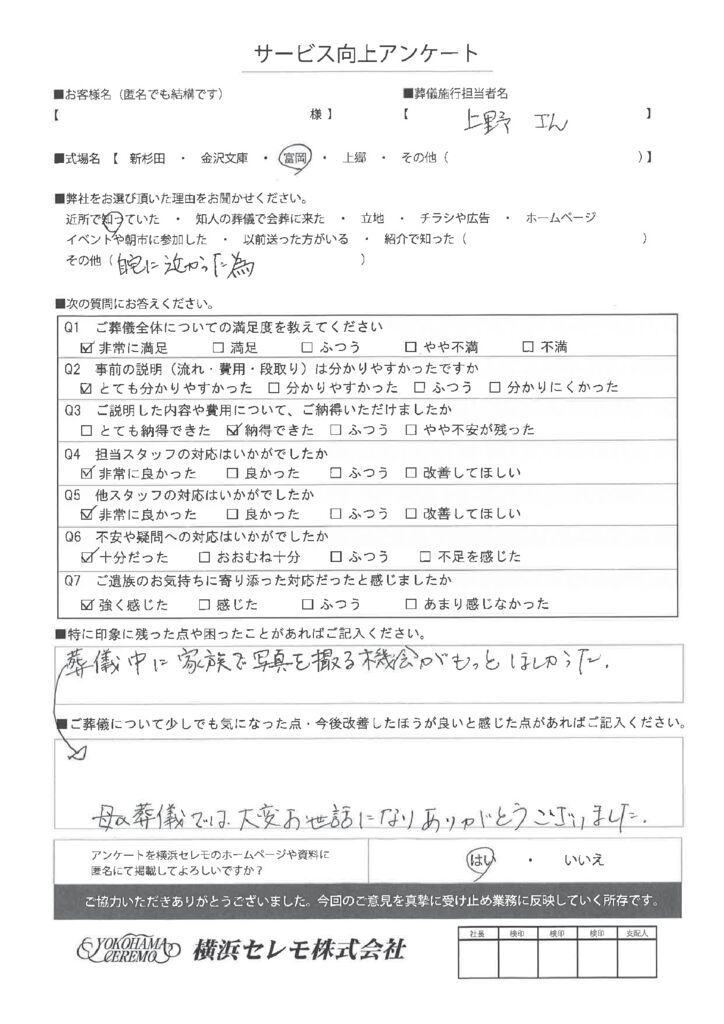 サービス向上アンケート
■お客様名（匿名でも結構です）
【　様】
■葬儀施行担当者名
【 上野 さん 】
■式場名【 新杉田 ・ 金沢文庫 ・ 富岡 ・ 上郷 ・ その他（　）】
■弊社をお選び頂いた理由をお聞かせください。
近所で知っていた ・ 知人の葬儀で会葬に来た ・ 立地 ・ チラシや広告 ・ ホームページ
イベントや朝市に参加した ・ 以前送った方がいる ・ 紹介で知った（　）
その他（ 自宅に近かった為 ）
■次の質問にお答えください。
Q1 ご葬儀全体についての満足度を教えてください
☑ 非常に満足 □ 満足 □ ふつう □ やや不満 □ 不満
Q2 事前の説明（流れ・費用・段取り）は分かりやすかったですか
☑ とても分かりやすかった □ 分かりやすかった □ ふつう □ 分かりにくかった
Q3 ご説明した内容や費用について、ご納得いただけましたか
□ とても納得できた ☑ 納得できた □ ふつう □ やや不安が残った
Q4 担当スタッフの対応はいかがでしたか
☑ 非常に良かった □ 良かった □ ふつう □ 改善してほしい
Q5 他スタッフの対応はいかがでしたか
☑ 非常に良かった □ 良かった □ ふつう □ 改善してほしい
Q6 不安や疑問への対応はいかがでしたか
☑ 十分だった □ おおむね十分 □ ふつう □ 不足を感じた
Q7 ご遺族のお気持ちに寄り添った対応だったと感じましたか
☑ 強く感じた □ 感じた □ ふつう □ あまり感じなかった
■特に印象に残った点や困ったことがあればご記入ください。
葬儀中に家族で写真を撮る機会がもっとほしかった.
■ご葬儀について少しでも気になった点・今後改善したほうが良いと感じた点があればご記入ください。
母の葬儀では、大変お世話になりありがとうございました.
アンケートを横浜セレモのホームページや資料に
匿名にて掲載してよろしいですか？
はい ・ いいえ
ご協力いただきありがとうございました。今回のご意見を真摯に受け止め業務に反映していく所存です。
YOKOHAMA
CEREMO
横浜セレモ株式会社
社長 検印 検印 検印 支配人